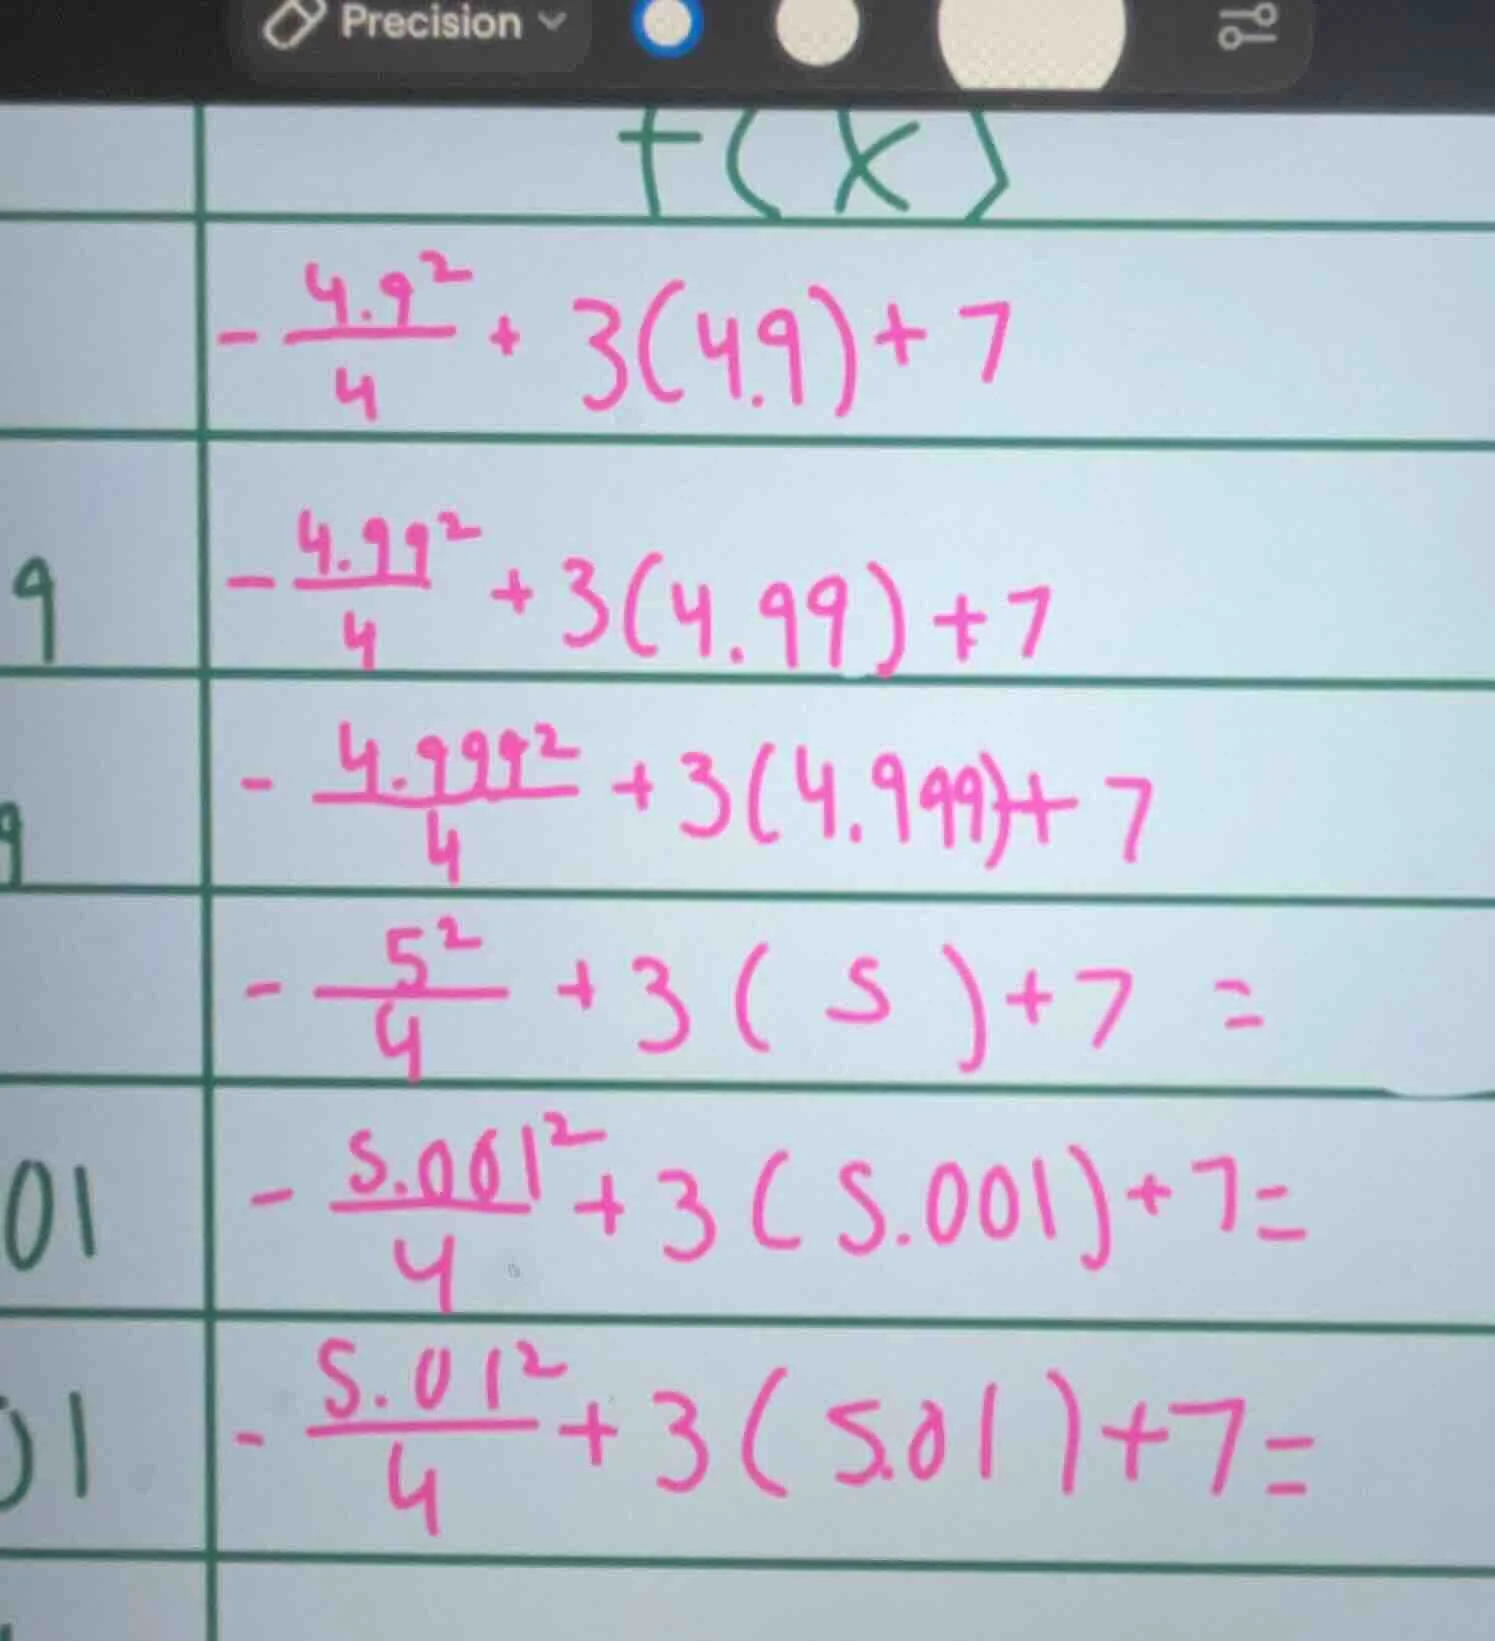 Precision
f(x)
- 4.9²/4 + 3(4.9) + 7
9 - 4.99²/4 + 3(4.99) + 7
9 - 4.999²/4 + 3(4.999) + 7
- 5²/4 + 3(5) + 7 =
01 - 5.001²/4 + 3(5.001) + 7 =
01 - 5.01²/4 + 3(5.01) + 7 =